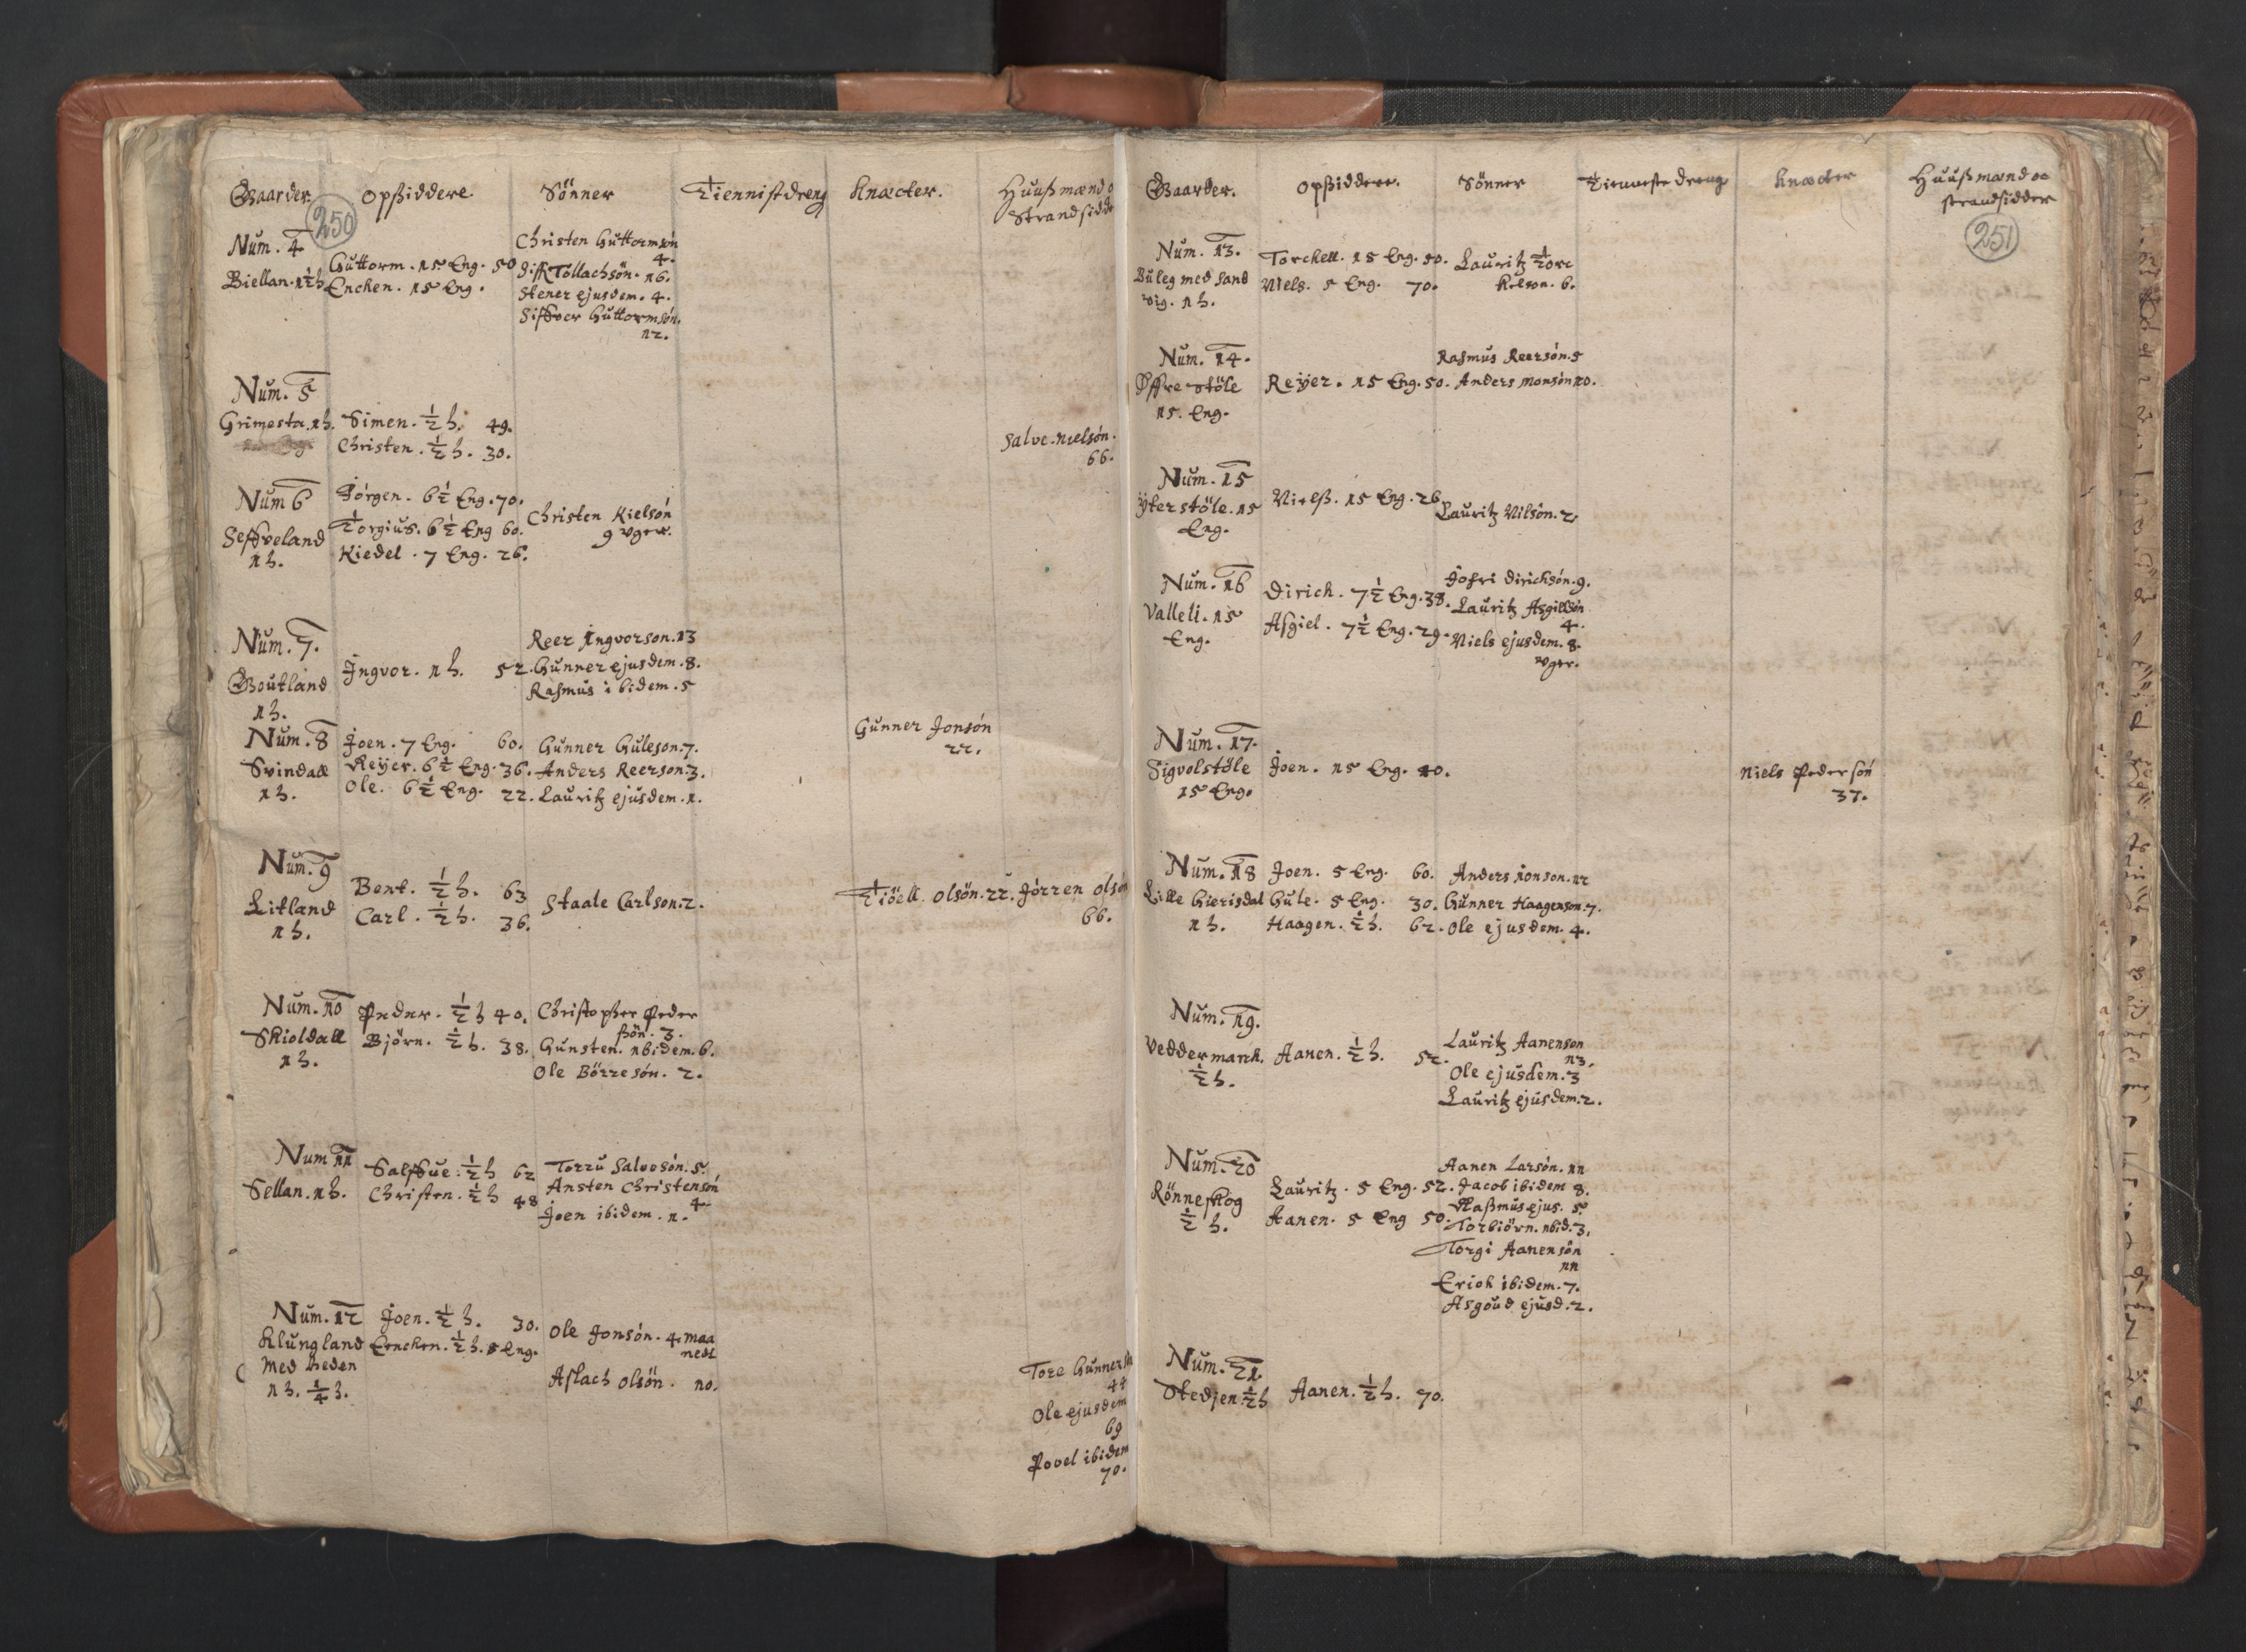 Gaarder. opßiddere Sönner Tiennistdreng Knæcter. Huußmænd o
Strandsidde
250
Num. 4
Biellan. 1½ h.
Guttorm. 15 Eng. 50
Enchen. 15 Eng.
Christen Guttormsón
4.
Tollachsön. 16.
Stener ejusdem. 4.
Siffver Guttormsón.
12.
Num. 5
Grimesta. 1 h.
Simen. ½ h. 49.
Christen. ½ h. 30.
Salve. nielsón.
66.
Num 6
Seffveland
1 h.
Jörgen. 6½ Eng. 70.
Torgius. 6½ Eng 60.
Kiedel. 7 Eng. 26.
Christen Kielsón
9 Vger.
Num. 7.
Goutland
1 h.
Jngvor. 1 h. 52.
Reer Jngvorson. 13
Gunner ejusdem. 8.
Rasmus ibidem. 5
Num. 8
Svindall
1 h.
Joen. 7 Eng. 60.
Reijer. 6½ Eng. 36.
Ole. 6½ Eng. 22.
Gunner Guleson. 7.
Anders Reerson. 3.
Lauritz ejusdem. 1.
Gunner Jonsón
22.
Num. 9
Litland
1 h.
Bent. ½ h. 63
Carl. ½ h. 36.
Staale Carlson. 2.
Tiöell. olsön. 22.
Jörren olsón
66.
Num. 10
Skioldall
1 h.
Peder. ½ h 40.
Björn. ½ h. 38.
Christopher Peder
ßön. 3.
Gunsten. ibidem. 6.
Ole Börresón. 2.
Num 11
Sellan. 1 h.
Salffue. ½ h 62
Christen. ½ h 48
Torru Salvesón. 5.
Ansten Christensón
4
Joen ibidem. 1.
Num. 12
Klungland
Med heden
1 h. ¼ h.
Joen. ½ h. 30.
Encken. ½ h. 5 Eng.
Ole Jonsón. 4. maa
nedt
Aslach olsön. 10.
Tore Gunners
44
Ole ejusdem
69
Povel ibidem
70.
Gaarder. opßiddere. Sönner Tienneste dreng Knæcter Huußmænd oc
strandsidder
251
Num. 13.
Buleg med sand
vig. 1 h.
Torchell. 15 Eng. 50.
Niels. 5 Eng. 70.
Lauritz Torc
kelson. 6.
Num. 14.
Öffre Stöle
15. Eng.
Reijer. 15 Eng. 50.
Rasmus Reersón. 5
Anders monsón 10.
Num. 15
Ytterstöle. 15
Eng.
Nielß. 15 Eng. 26
Lauritz Nilsön. 2
Num. 16
Valleli. 15
Eng.
Dirich. 7½ Eng. 38.
Asgiel. 7½ Eng. 29.
Jofri dirichsón. 9.
Lauritz Asgielsón
4.
Niels ejusdem. 8.
vger.
Num. 17.
Sigvolstöle
15 Eng.
Joen. 15 Eng. 40.
niels Pedersón
37.
Num. 18
Lille Gierisdal
1 h.
Joen. 5 Eng. 60.
Gule. 5 Eng. 30.
Haagen. ½ h. 62.
Anders Jonson. 12
Gunner Haagenson. 7.
Ole ejusdem. 4.
Num. 19.
Veddermarck.
½ h.
Aanen. ½ h. 52.
Lauritz Aanenson
13.
Ole ejusdem. 3
Lauritz ejusdem. 2.
Num. 20
Rönneskog
½ h.
Lauritz. 5 Eng. 52.
Aanen. 5 Eng 50.
Aanen Larsón. 11
Jacob ibidem 8.
Raßmus ejus. 5.
Torbiörn. ibid. 3.
Torgi Aanensön
11
Erich ibidem. 7.
Asgoud ejusd. 2.
Num. 21.
Stedjen. ½ h
Aanen. ½ h. 70.